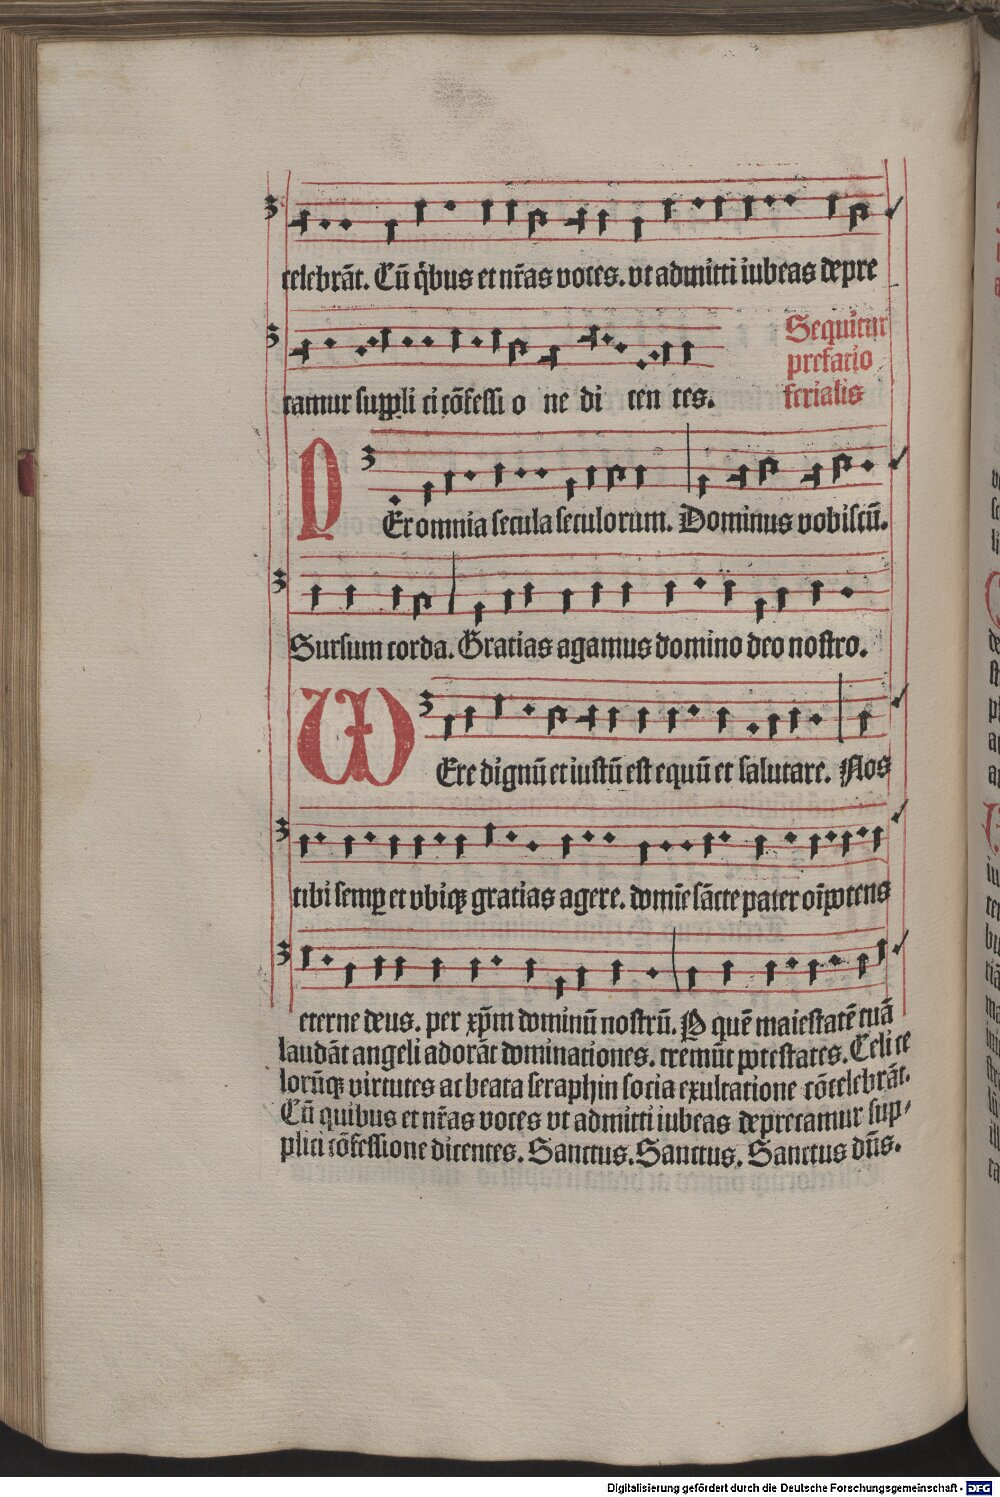 celebrãt. Cũ q̇bus et nr̃as voces. vt admitti iubeas depre
camur suppli ci cõfessi o ne di cen tes.
Sequitur
prefacio
ferialis
PEr omnia secula seculorum. Dominus vobiscũ.
Sursum corda. Gratias agamus domino deo nostro.
VEre dignũ et iustũ est equũ et salutare. Nos
tibi semꝑ et vbiqꝫ gratias agere. domĩe sãcte pater oĩpotens
eterne deus. per xp̃m dominũ nostrũ. P quẽ maiestatẽ tuã
laudãt angeli adorãt dominationes. tremũt potestates. Celi ce
lorũqꝫ virtutes ac beata seraphin socia exultatione cõcelebrãt.
Cũ quibus et nr̃as voces vt admitti iubeas deprecamur sup⸗
plici cõfessione dicentes. Sanctus. Sanctus. Sanctus dñs.
Digitalisierung gefördert durch die Deutsche Forschungsgemeinschaft - DFG